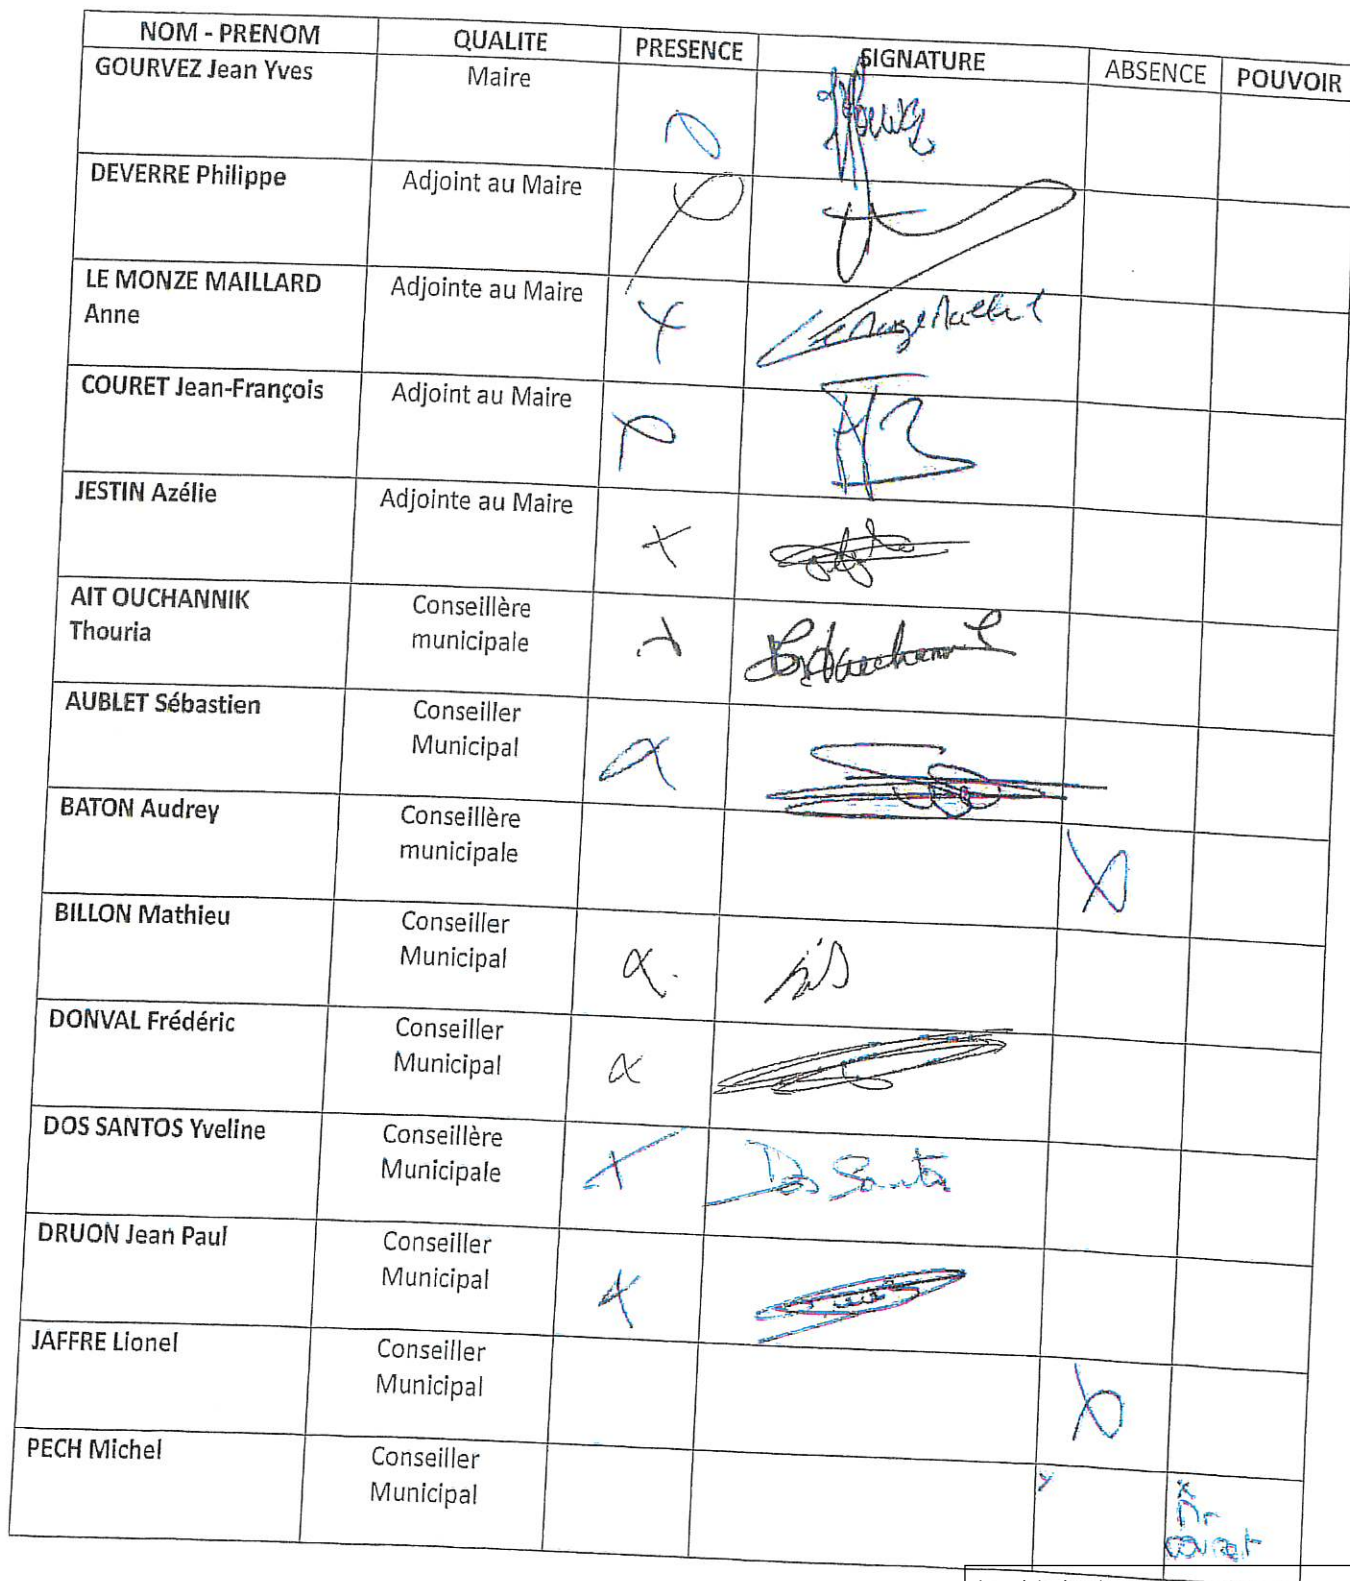 NOM - PRENOM QUALITE PRESENCE SIGNATURE ABSENCE POUVOIR
GOURVEZ Jean Yves Maire
DEVERRE Philippe Adjoint au Maire
LE MONZE MAILLARD Adjointe au Maire
Anne
COURET Jean-François Adjoint au Maire
JESTIN Azélie Adjointe au Maire
AIT OUCHANNIK Conseillère
Thouria municipale
AUBLET Sébastien Conseiller
Municipal
BATON Audrey Conseillère
municipale
BILLON Mathieu Conseiller
Municipal
DONVAL Frédéric Conseiller
Municipal
DOS SANTOS Yveline Conseillère
Municipale Dos Santos
DRUON Jean Paul Conseiller
Municipal
JAFFRE Lionel Conseiller
Municipal
PECH Michel Conseiller
Municipal x x
Mr
couret